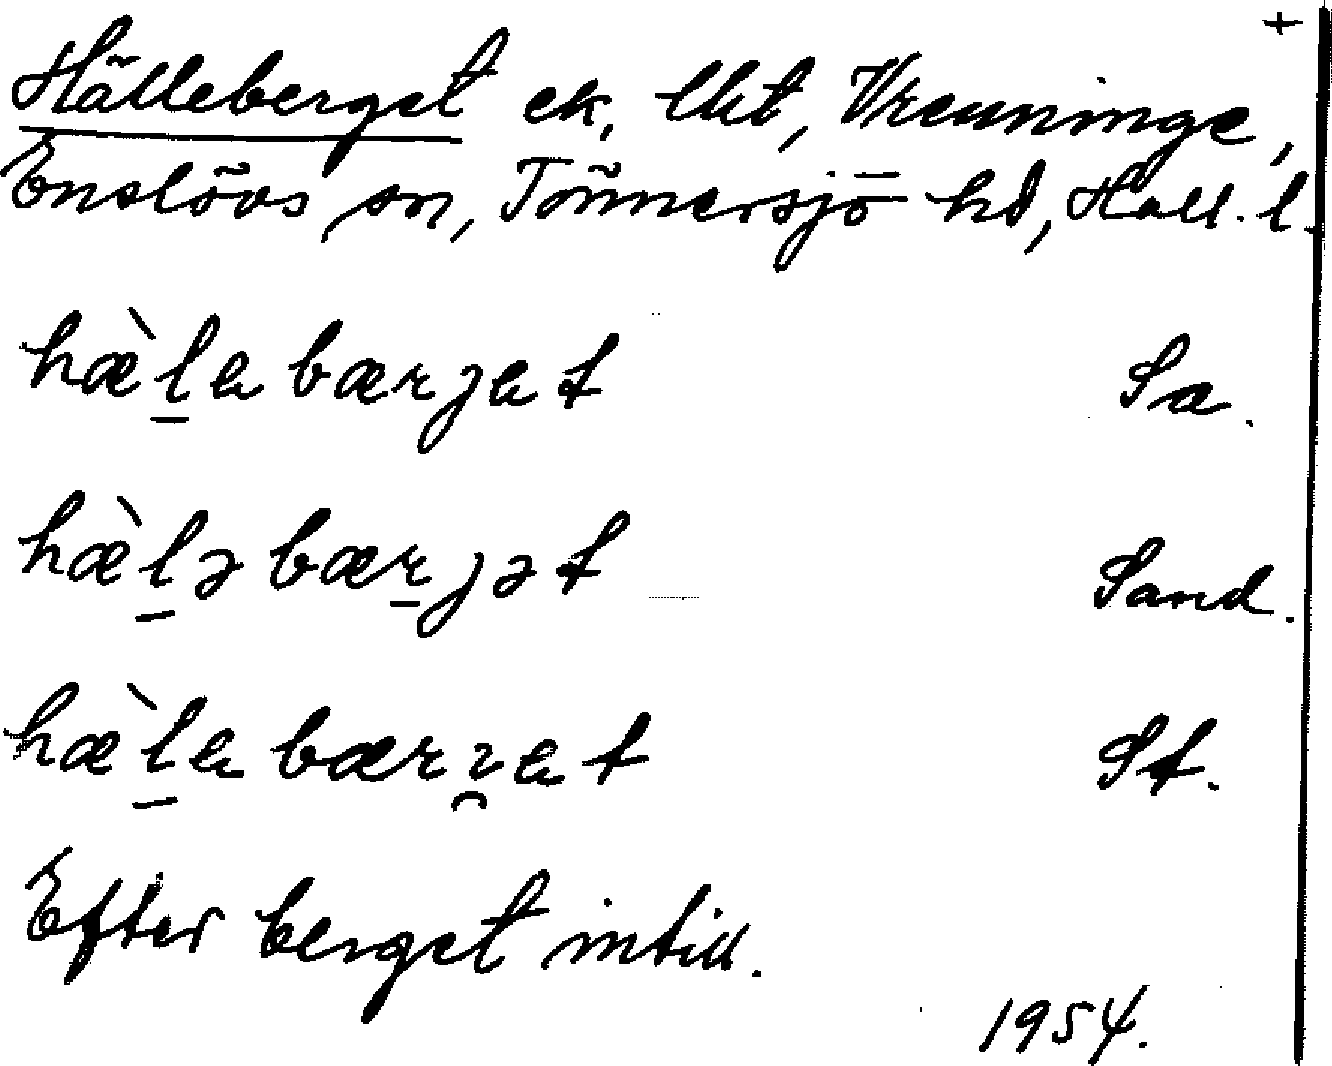 +
Hälleberget ek, lht, Vrenninge,
Enslövs sn, Tönnersjö hd, Hall. l.
hæ̀l̠ebærjet Sa.
hæ̀l̠əbær̠jət Sand.
hæ̀l̠ebærɿ̯et St.
Efter berget intill.
1954.